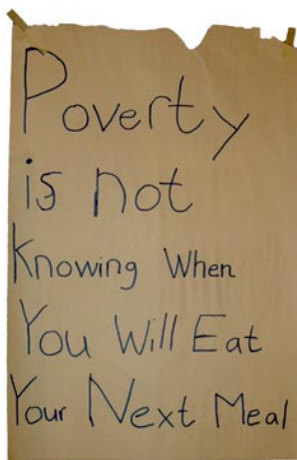 Poverty
is not
Knowing When
You Will Eat
Your Next Meal